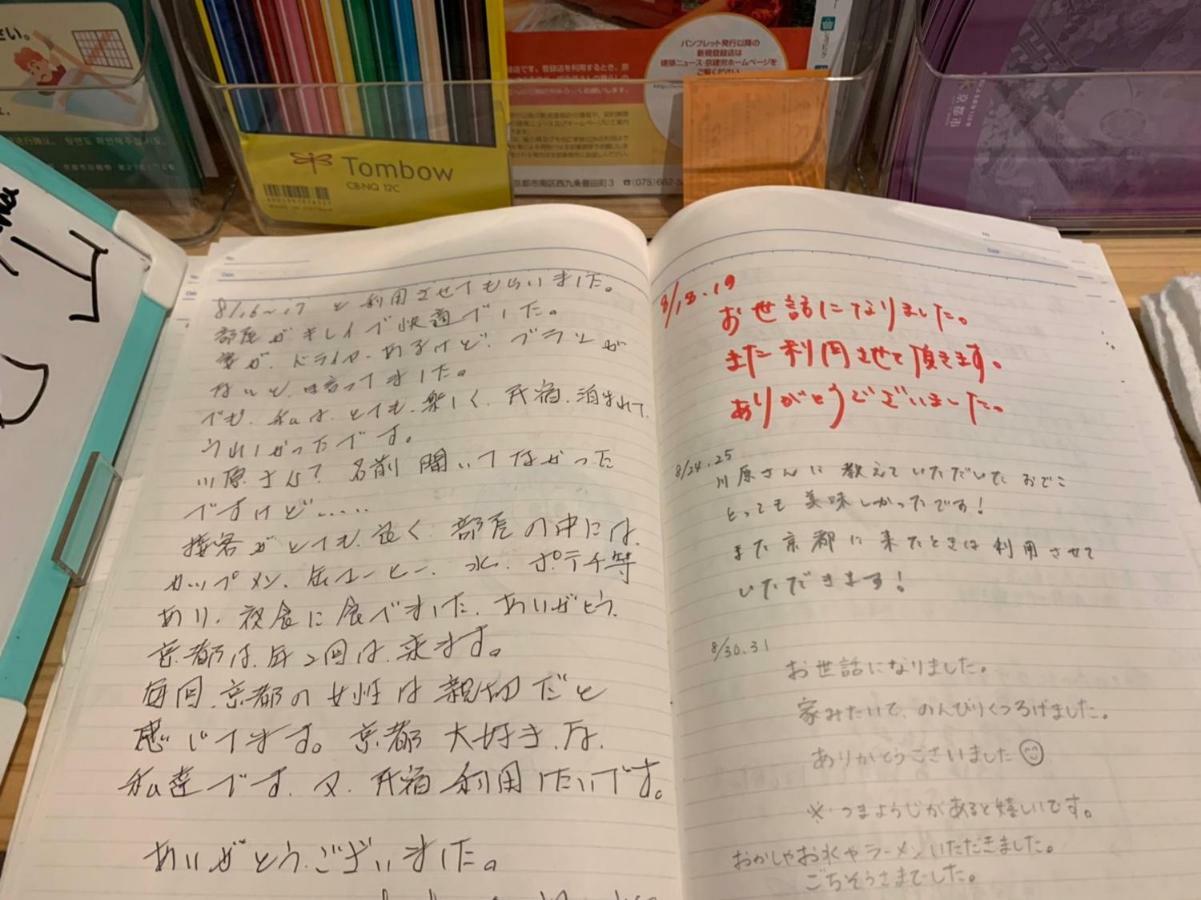 さい。
パンフレット発行以降の
新規登録店は
建築ニュース・京建労ホームページを
ご覧ください
Tombow
CB-NQ 12C
京都市南区西九条豊田町3 ☎(075)662-5
8/16~17 と利用させてもらいました。
部屋がキレイで快適でした。
妻が、ドライヤーあるけど、ブラシが
ないと、は言ってました。
でも、私は、とても、楽しく、民宿、泊まれて、
うれしかったです。
川原さん? 名前 聞いてなかった
ですけど‥‥‥
接客がとても、良く、部屋の中には、
カップメン、缶コーヒー、水、ポテチ等
あり、夜食に食べました、ありがとう、
京都は、年2回は、来ます。
毎回、京都の女性は親切だと
感じてます。京都 大好き、な、
私達です、又、民宿 利用したいです。
ありがとう、ございました。
8/18.19
お世話になりました。
また利用させて頂きます。
ありがとうございました。
8/24.25
川原さんに教えていただいたおでこ
とっても美味しかったです!
また京都に来たときは利用させて
いただきます!
8/30.31
お世話になりました。
家みたいで、のんびりくつろげました。
ありがとうございました
※つまようじがあると嬉しいです。
おかしやお水やラーメンいただきました。
ごちそうさまでした。